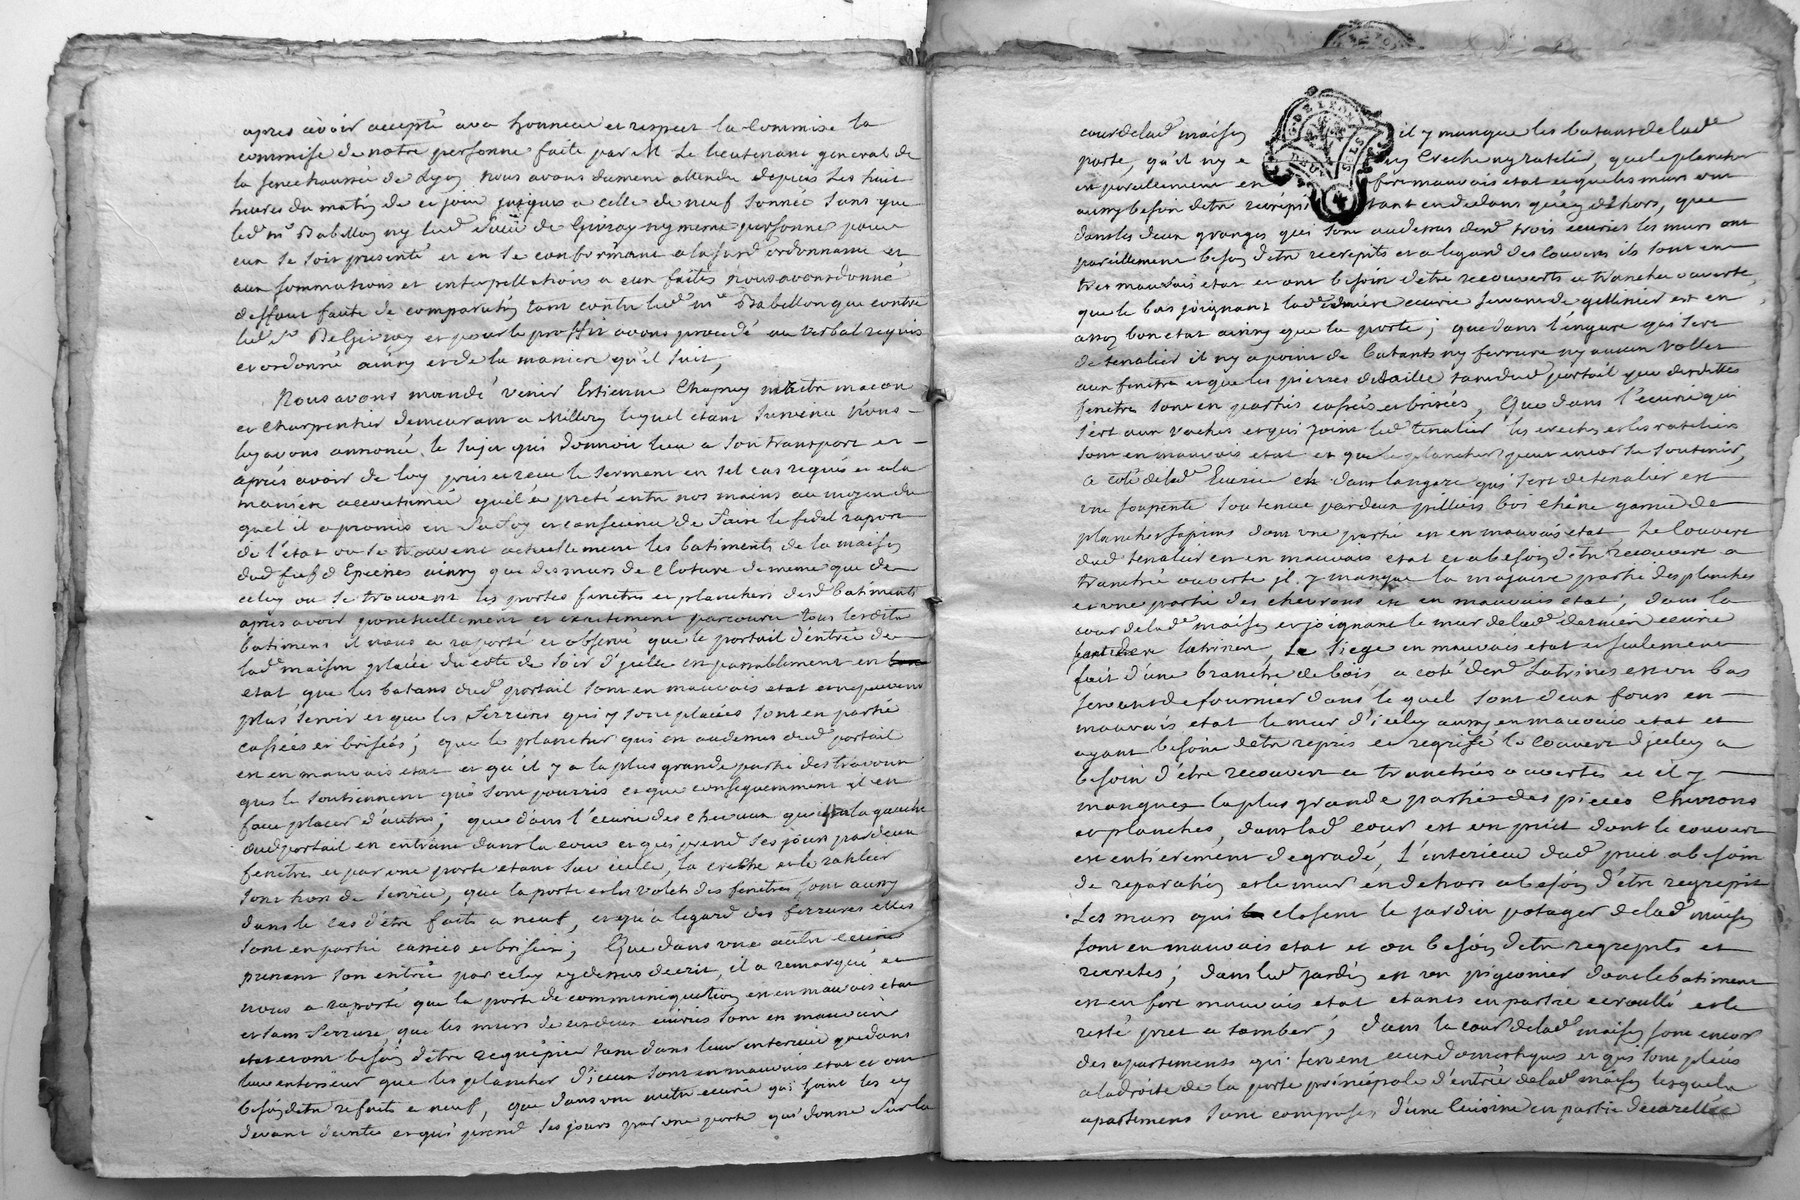 apres avoir accepté avec honneur et respect la Commise la
commise de notre personne faite par M Le lieutenant general de
la senechaussée de Lyon nous avons dument attendu depuis Les huit
heures du matin de ce jour jusques a celle de neuf sonnée sans que
led me Babillon ny led Sieur de Givray ny meme personne pour
eux se soit presenté et en se conformant a la susd ordonnance et
aux sommations et interpellations a eux faites nous avons donné
deffaut faute de comparution tant contre led me Babillon que contre
led Sr De Givray et pour le proffit avons procedé au verbal requis
et ordonné ainsy et de la maniere qu'il suit,
Nous avons mandé venir Estienne Chapuy maitre macon
et Charpentier demeurant a Millery lequel etant survenu Nous
luy avons annoncé le sujet qui donnoit lieu a son transport et
après avoir de luy pris et receu le serment en tel cas requis et a la
maniere accoutumée quel a preté entre nos mains au moyen du
quel il a promis en sa foy et conscience de faire le fidel raport
de l'état ou se trouvent actuellement les batiments de la maison
dud fief d Epeisses ainsy que des murs de Cloture de meme que de
celuy ou se trouvent les portes fenetres et planchers desd batiments
apres avoir ponctuellement et exactement parcouru tous lesdits
batimens il nous a raporté et observé que le portail d'entrée de
lad maison placé du coté de soir d'icelle est passablement en bon
etat, que les batans dud portail sont en mauvais etat et ne peuvent
plus servir et que les ferrures qui y sont placées sont en partie
cassées et brisées; que le plancher qui est au dessus dud portail
est en mauvais etat et qu'il y a la plus grande partie des travons
qui le soutiennent qui sont pourris et que consequemment il en
faut placer d'autres; que dans l'écurie des chevaux qui est a la gauche
dud portail en entrant dans la cour et qui prend ses jours par deux
fenetres et par une porte etant sur icelle, la creche et le ratelier
sont hors de service, que la porte et les volets des fenetres sont aussy
dans le cas d'être faits a neuf, et qu'a l'egard des ferrures elles
sont en partie cassées et brisées; Que dans une autre écurie
prenant son entrée par celuy cy dessus decrit, il a remarqué et
nous a raporté que la porte de communiquation est en mauvais etat
et sans serrure, que les murs de ces deux écuries sont en mauvais
etat et ont besoin d'être regrépies tant dans leur interieur que dans
leur exterieur que les plancher d'iceux sont en mauvais etat et ont
besoin detre refaits a neuf, que dans une autre ecurie qui joint les cy
devant decrites et qui prend ses jours par une porte qui donne sur la
cour de lad maison il y manque les batans de lad
porte, qu'il n'y a ny Creche ny ratelier, que le plancher
est pareillement en fort mauvais etat et que les murs ont
aussy besoin detre recrépis tant en dedans qu'en dehors, que
dans les deux granges qui sont au dessus desd trois ecuries les murs ont
pareillement besoin d'etre recrepits et a l'egard des couverts ils sont en
tres mauvais etat et ont besoin d'etre recouverts a tranchée ouverte,
que le bas joignant lad derniere ecurie servant de gelinier est en
assez bon etat ainsy que la porte; que dans l'engard qui sert
de tenalier il n'y a point de batants ny ferrure ny aucun volet
aux fenetres et que les pierres de taille tant dud portail que desdittes
fenetres sont en parties cassées et brisées, Que dans l'écurie qui
sert aux vaches et qui joint led tenalier les creches et les rateliers
sont en mauvais etat et que le plancher peut encor se soutenir,
a coté de lad Ecurie et dans l'angard qui sert de tenalier est
une soupente soutenue par deux pilliers bois chêne garnie de
plancher sapins dont une partie est en mauvais etat Le couvert
dud tenalier est en mauvais etat et a besoin d'etre recouvert a
tranchée ouverte il y manque la majeure partie des planches
et une partie des chevrons est en mauvais etat; dans la
cour de lad maison et joignant le mur de lad derniere ecurie
sont les latrines, le siege en mauvais etat et seulement
fait d'une branche de bois, a coté desd Latrines est un bas
servant de fournier dans lequel sont deux fours en
mauvais etat le mur d'icelui aussy en mauvais etat et
ayant besoin detre repris et regrisé le couvert d'iceluy a
besoin d'être recouvert a tranchées ouvertes et il y
manque la plus grande partie des pieces Chevrons
et planches, dans lad cour est un puit dont le couvert
est entierement degradé, L'interieur dud puit a besoin
de reparation et le mur en dehors a besoin d'etre regrepit
Les murs qui closent le jardin potager de lad maison
sont en mauvais etat et ont besoin detre regrepits et
recretés; dans led jardin est un pigeonier dont le batiment
est en fort mauvais etat etants en partie ecroullé et le
resté pret a tomber; dans la cour de lad maison sont encor
des apartements qui servent aux domestiques et qui sont placés
a la droite de la porte principale d'entrée de lad maison lesquels
apartemens sont composés d'une Cuisine en partie decarellée